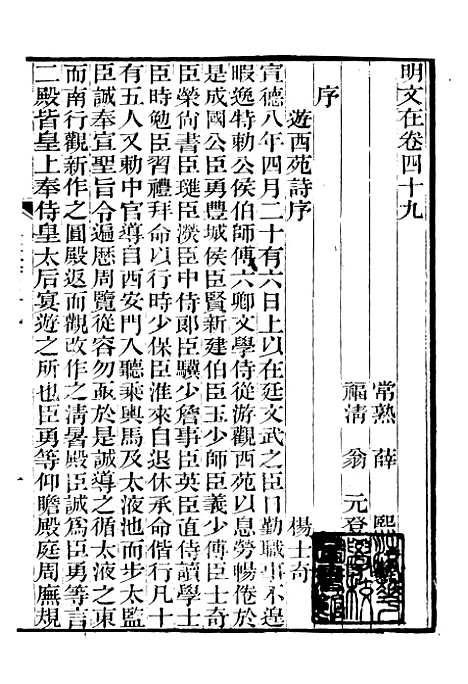 明文在卷四十九
常熟 薛 熙
福清 翁 元登
序
遊西苑詩序 楊士奇
宣德八年四月二十有六日上以在廷文武之臣日勤職事不遑
暇逸特勅公侯伯師傅六卿文學侍從游觀西苑以息勞暢倦於
是成國公臣勇豐城侯臣賢新建伯臣玉少師臣義少傅臣士奇
臣榮尚書臣璡臣濙臣中侍郎臣驥少詹事臣英臣直侍讀學士
臣時勉臣習禮拜命以行時少保臣淮來自退休承命偕行凡十
有五人又勅中官導自西安門入聽乘輿馬及太液池而步太監
臣誠奉宣聖旨令遍歷周覽從容勿亟於是誠導之循太液之東
而南行觀新作之圓殿返而觀改作之清暑殿臣誠爲臣勇等言
二殿皆皇上奉侍皇太后宴遊之所也臣勇等仰瞻殿庭周廡規